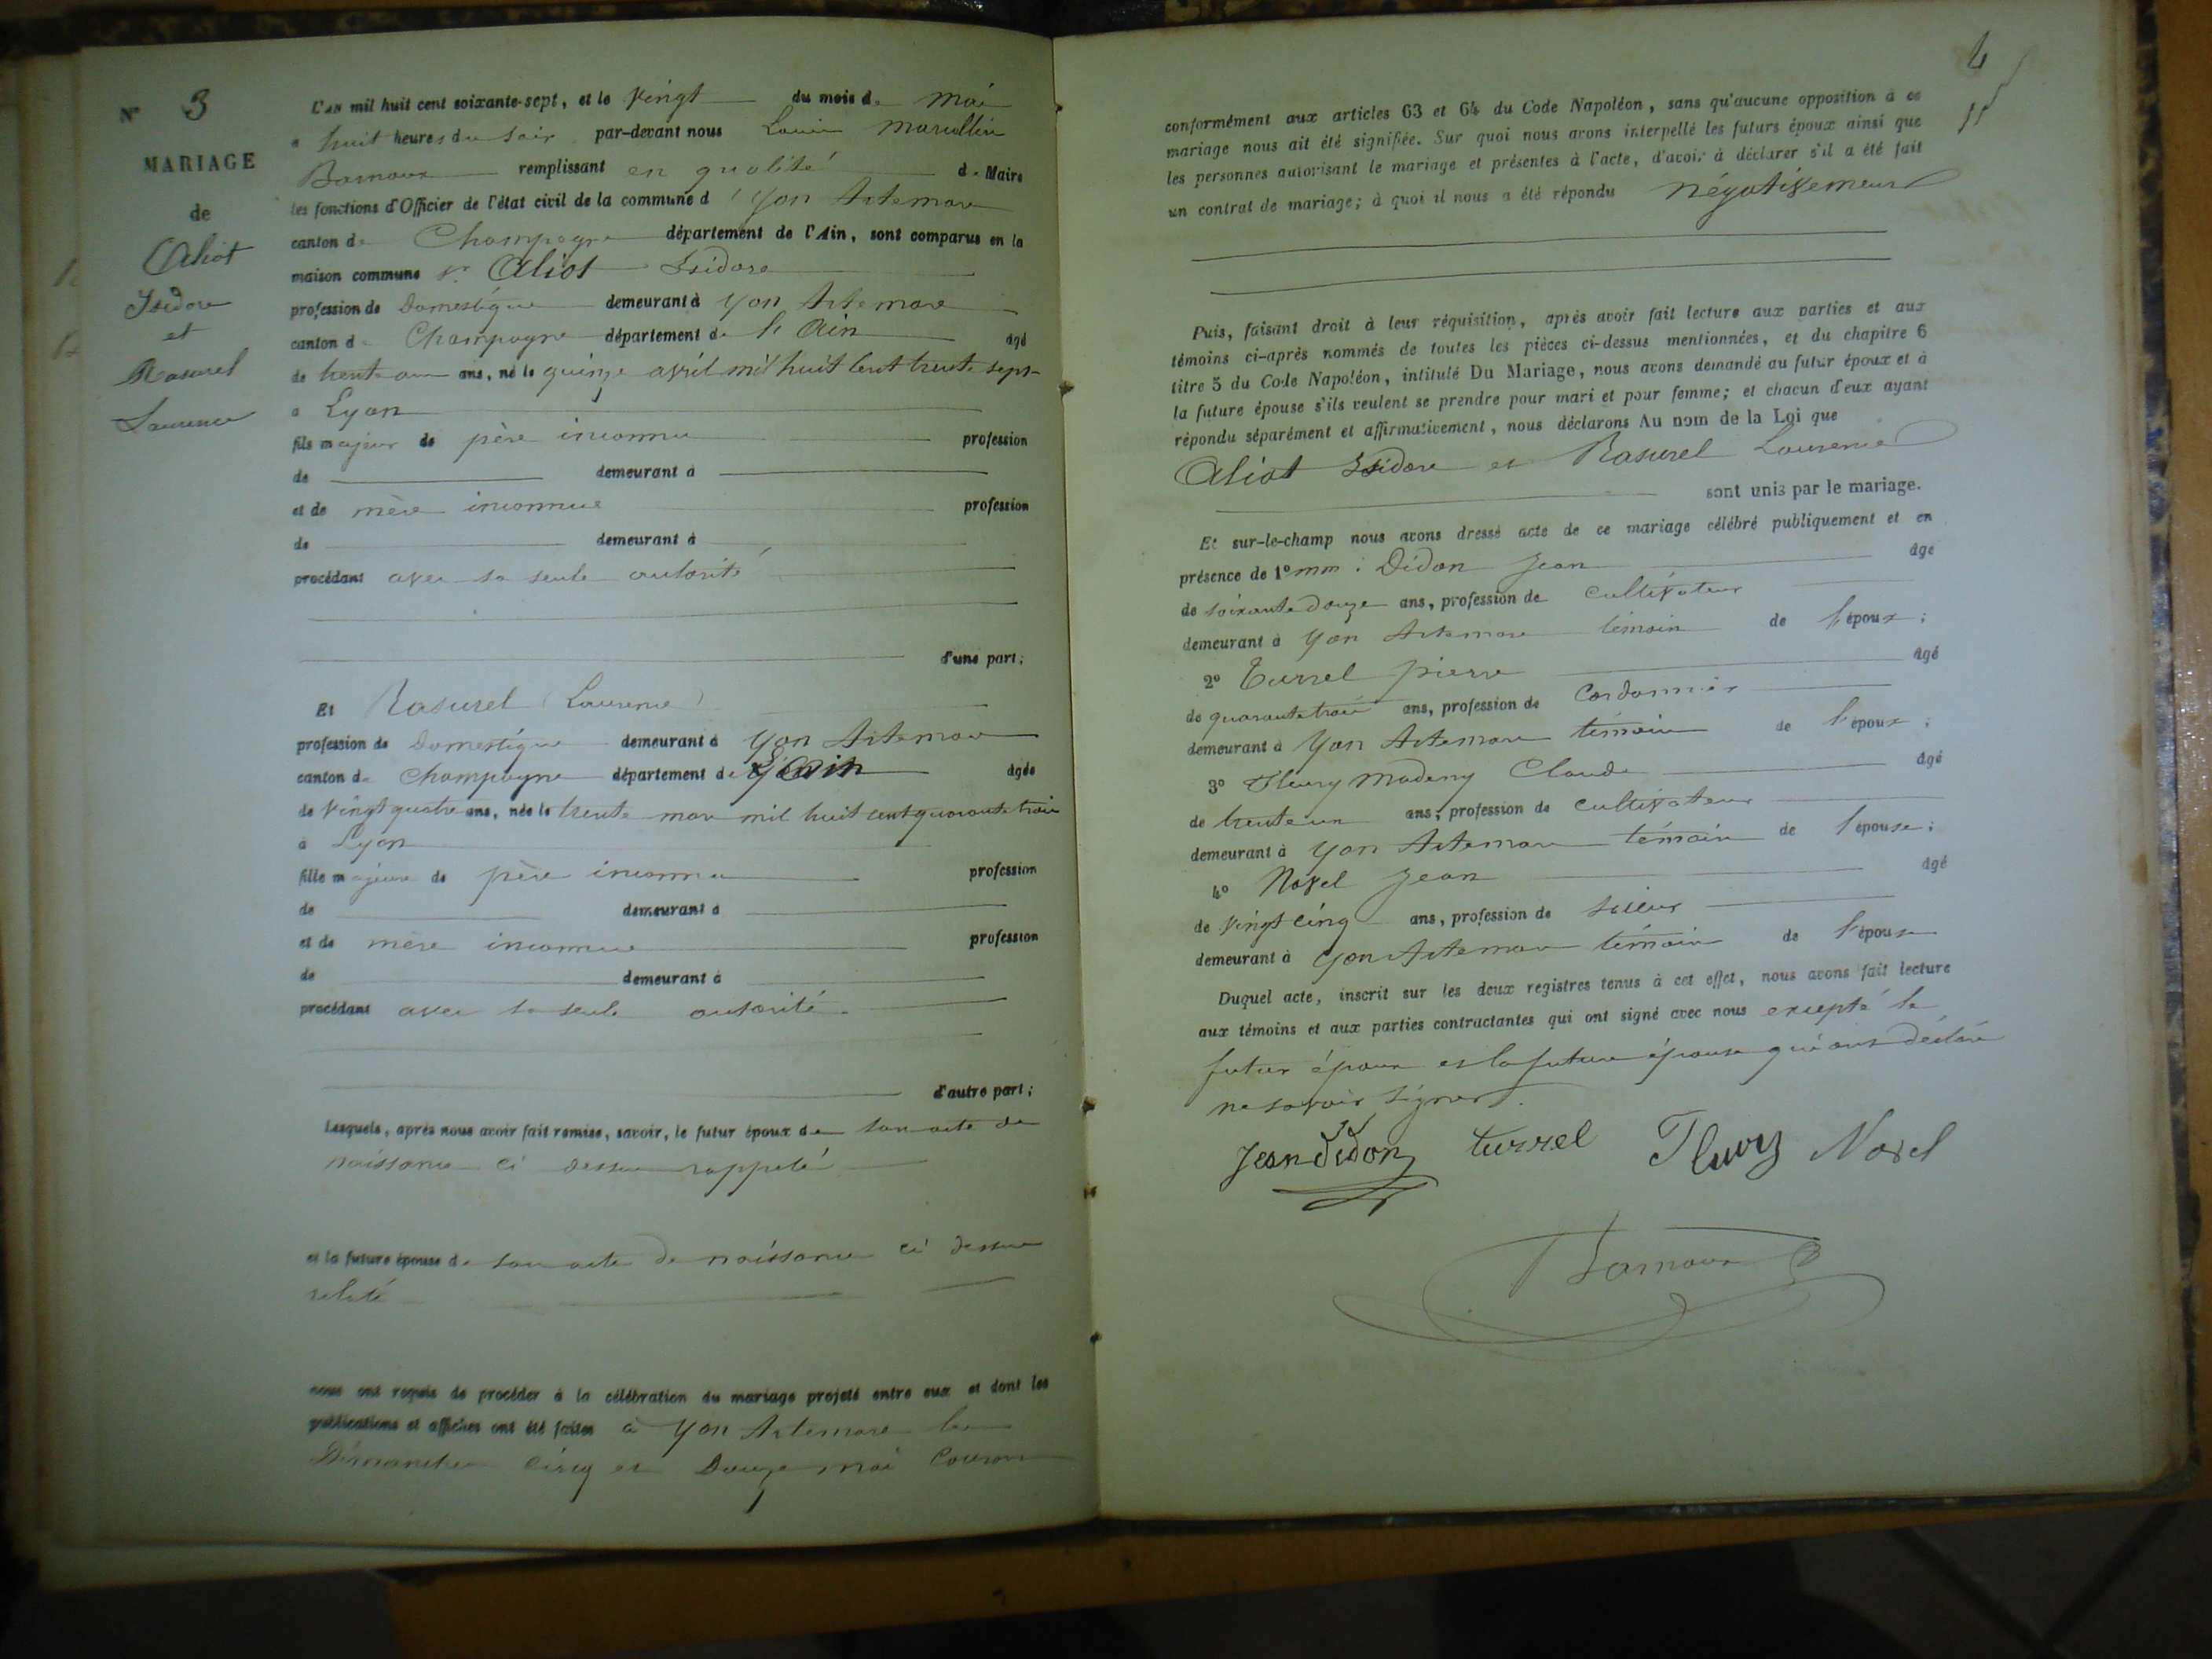 N° 3
MARIAGE
de
Aliot
Isidore
et
Rasurel
Laurence
L'AN mil huit cent soixante-sept, et le vingt du mois de mai
à huit heures du soir par-devant nous Louis Marcellin
remplissant en qualité de Maire
les fonctions d'Officier de l'état civil de la commune d' Yon Artemare
canton de Champagne département de l'Ain, sont comparus en la
maison commune Sr Aliot Isidore
profession de Domestique demeurant à Yon Artemare
canton de Champagne département de l'Ain âgé
de trente ans, né le quinze avril mil huit cent trente sept
à Lyon
fils majeur de père inconnu profession
de demeurant à
et de mère inconnue profession
de demeurant à
procédant avec sa seule autorité
d'une part;
Et Rasurel (Laurence)
profession de Domestique demeurant à Yon Artemare
canton de Champagne département de l'Ain âgée
de vingt quatre ans, née le trente mars mil huit cent quarante trois
à Lyon
fille majeure de père inconnu profession
de demeurant à
et de mère inconnue profession
de demeurant à
procédant avec sa seule autorité
d'autre part;
Lesquels, après nous avoir fait remise, savoir, le futur époux de son acte de
naissance ci dessus rappelé
et la future épouse de son acte de naissance ci dessus
relaté
nous ont requis de procéder à la célébration du mariage projeté entre eux et dont les
publications et affiches ont été faites à Yon Artemare les
Dimanches cinq et Douze mai Courant
4
conformément aux articles 63 et 64 du Code Napoléon, sans qu'aucune opposition à ce
mariage nous ait été signifiée. Sur quoi nous avons interpellé les futurs époux ainsi que
les personnes autorisant le mariage et présentes à l'acte, d'avoir à déclarer s'il a été fait
un contrat de mariage; à quoi il nous a été répondu négativement
Puis, faisant droit à leur réquisition, après avoir fait lecture aux parties et aux
témoins ci-après nommés de toutes les pièces ci-dessus mentionnées, et du chapitre 6
titre 5 du Code Napoléon, intitulé Du Mariage, nous avons demandé au futur époux et à
la future épouse s'ils veulent se prendre pour mari et pour femme; et chacun d'eux ayant
répondu séparément et affirmativement, nous déclarons Au nom de la Loi que
Aliot Isidore et Rasurel Laurence
sont unis par le mariage.
Et sur-le-champ nous avons dressé acte de ce mariage célébré publiquement et en
présence de 1° mm: Didon Jean âgé
de soixante douze ans, profession de cultivateur
demeurant à Yon Artemare témoin de l'époux;
2° Turrel pierre âgé
de quarante trois ans, profession de Cordonnier
demeurant à Yon Artemare témoin de l'époux;
3° Fleury Claude âgé
de trente un ans, profession de cultivateur
demeurant à Yon Artemare témoin de l'épouse;
4° Novel Jean âgé
de vingt cinq ans, profession de
demeurant à Yon Artemare témoin de l'épouse
Duquel acte, inscrit sur les deux registres tenus à cet effet, nous avons fait lecture
aux témoins et aux parties contractantes qui ont signé avec nous excepté le
futur époux et la future épouse qui ont déclaré
ne savoir signer.
Jean Didon turrel Fleury Novel